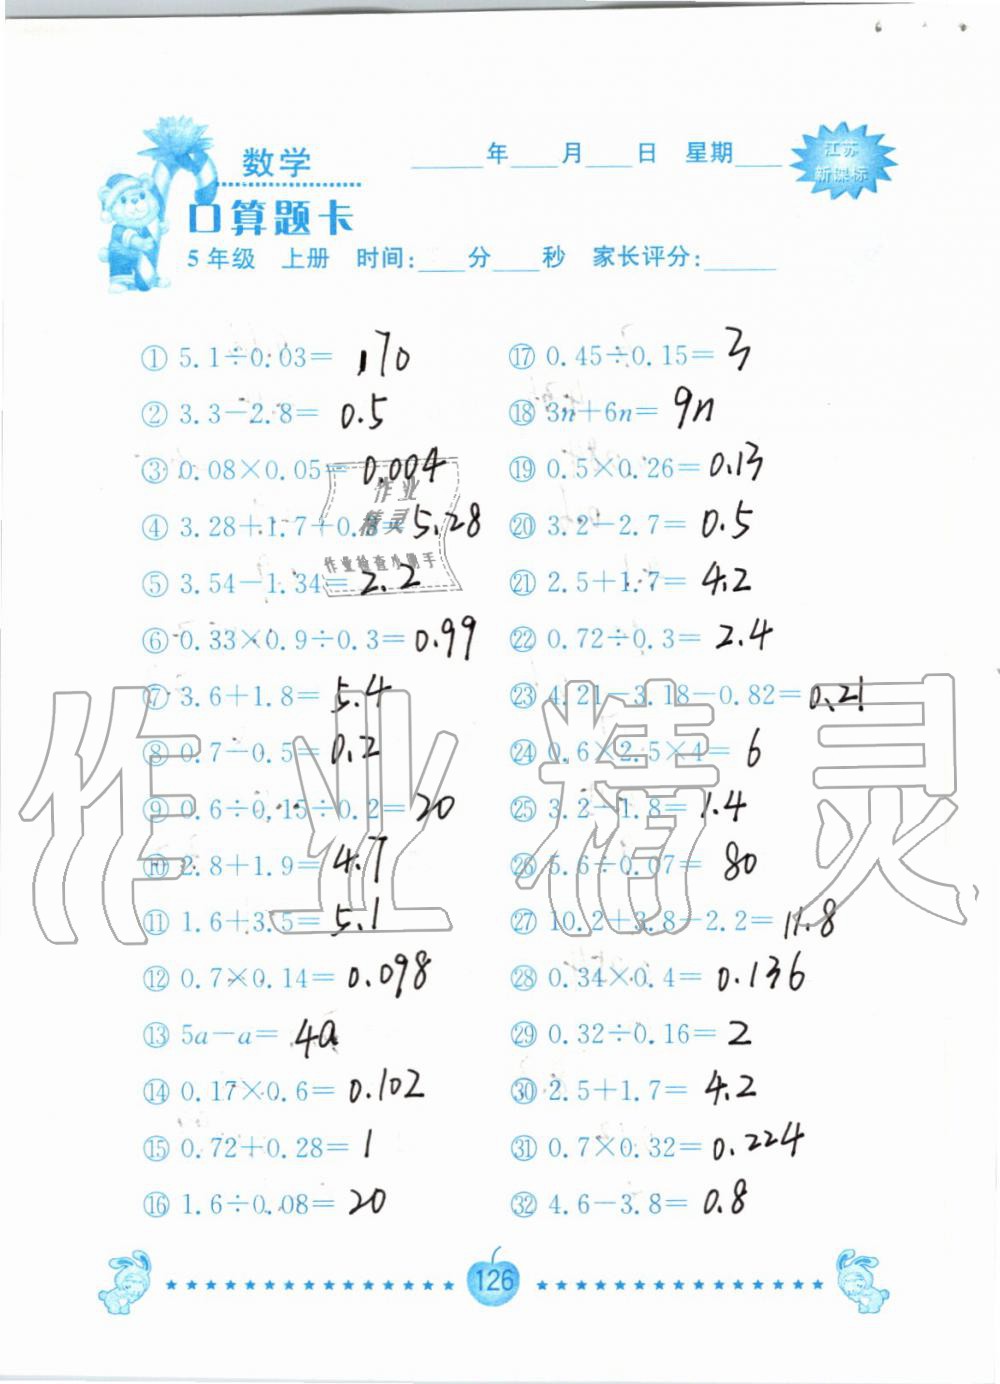 数学
____年____月____日 星期____
江苏
新课标
口算题卡
5年级 上册 时间:____分____秒 家长评分:____
① 5.1÷0.03= 170
② 3.3-2.8= 0.5
③ 0.08×0.05= 0.004
④ 3.28+1.7+0.3= 5.28
⑤ 3.54-1.34= 2.2
⑥ 0.33×0.9÷0.3= 0.99
⑦ 3.6+1.8= 5.4
⑧ 0.7-0.5= 0.2
⑨ 0.6÷0.15÷0.2= 20
⑩ 2.8+1.9= 4.7
⑪ 1.6+3.5= 5.1
⑫ 0.7×0.14= 0.098
⑬ 5a-a= 4a
⑭ 0.17×0.6= 0.102
⑮ 0.72+0.28= 1
⑯ 1.6÷0.08= 20
⑰ 0.45÷0.15= 3
⑱ 3n+6n= 9n
⑲ 0.5×0.26= 0.13
⑳ 3.2-2.7= 0.5
㉑ 2.5+1.7= 4.2
㉒ 0.72÷0.3= 2.4
㉓ 4.21-3.18-0.82= 0.21
㉔ 0.6×2.5×4= 6
㉕ 3.2-1.8= 1.4
㉖ 5.6÷0.07= 80
㉗ 10.2+3.8-2.2= 11.8
㉘ 0.34×0.4= 0.136
㉙ 0.32÷0.16= 2
㉚ 2.5+1.7= 4.2
㉛ 0.7×0.32= 0.224
㉜ 4.6-3.8= 0.8
作业
精灵
作业检查小助手
作业精灵
126